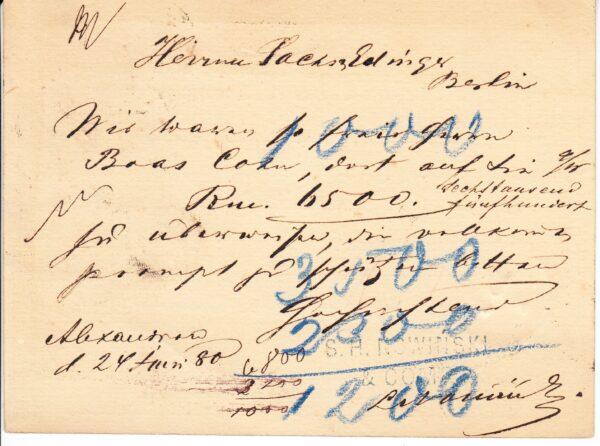 Herren Sachs & Edinger
Berlin
Wir waren so frei Herrn
Boas Cohn, dort auf Sie
Rm. 6500. sechstausend
fünfhundert
zu überweisen, die vollkommen
prompt zu schützen bitten
Hochachtend
S. H. NOWINSKI
& COMP.
Alexandrowo
d. 24 Juni 80
1000
3500
2300
1200
6800
1000